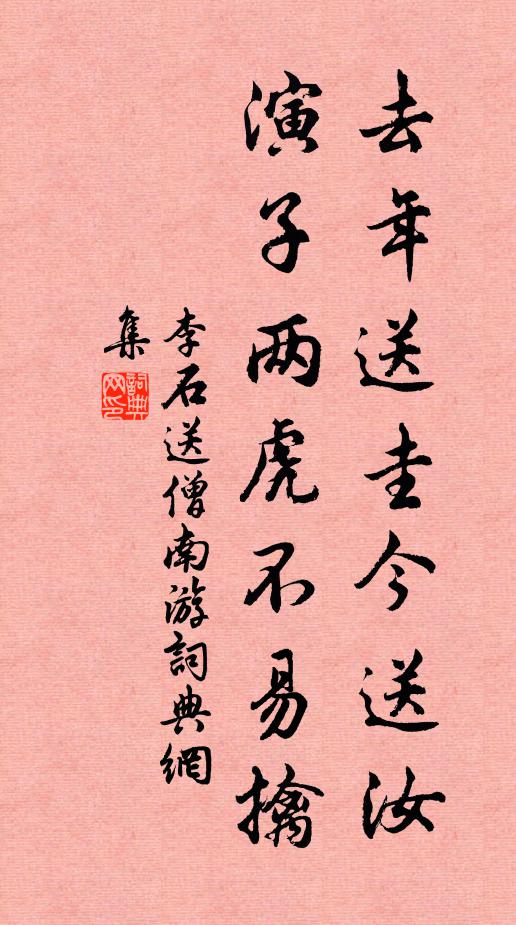 去年送圭今送汝
演子两虎不易擒
李石送僧南游詞典網
集
詞典网印